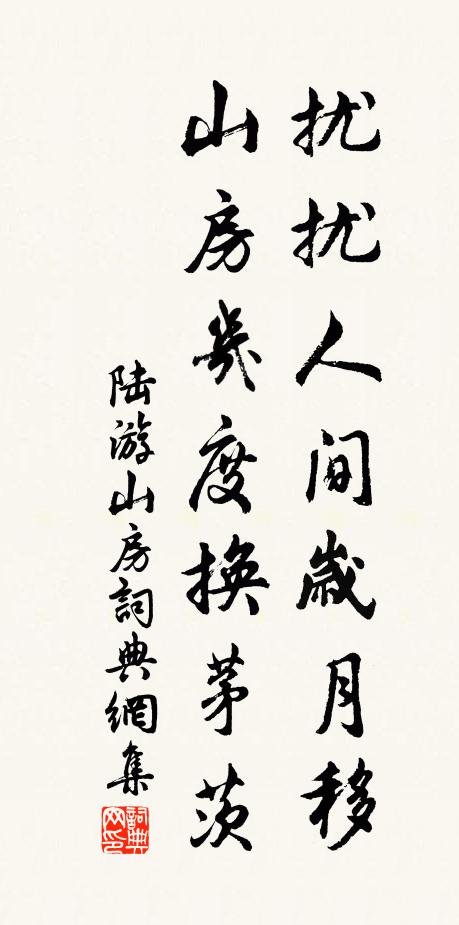 扰扰人间岁月移
山房几度换茅茨
陆游山房詞典網集
詞典网印